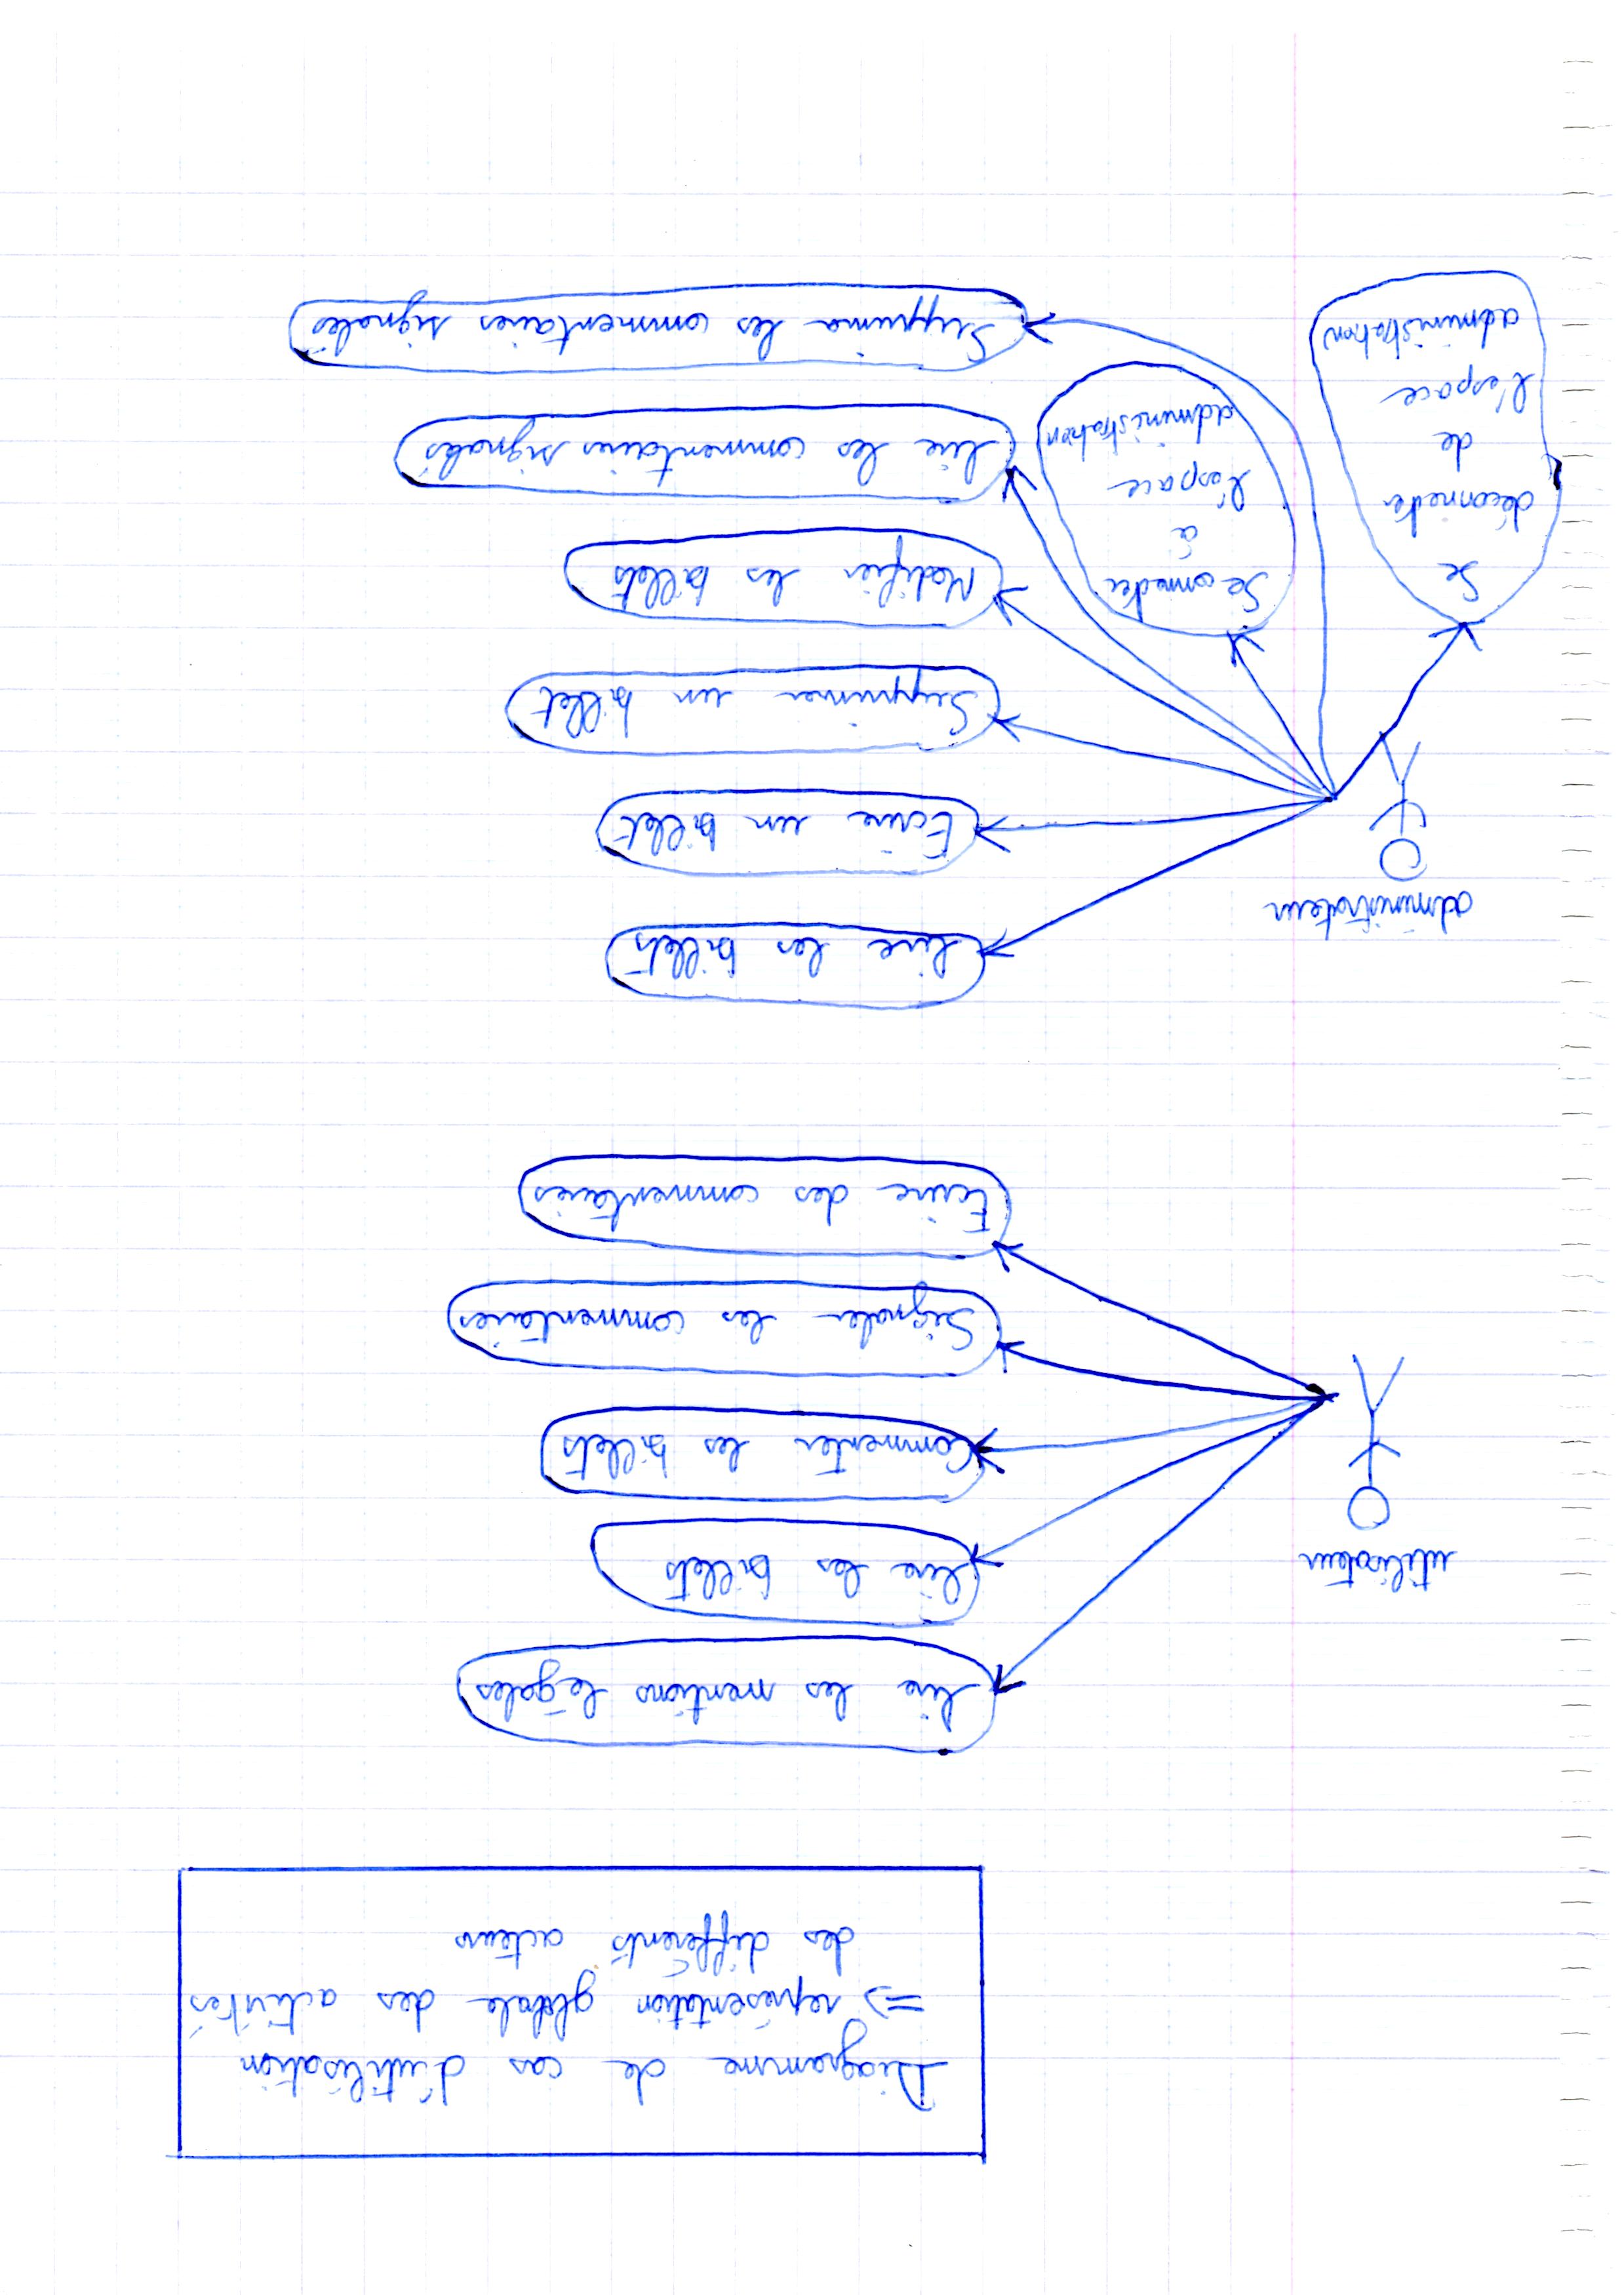 Diagramme de cas d'utilisation
=> représentation globale des activités
des différents acteurs
utilisateur
Lire les mentions légales
Lire les billets
Commenter les billets
Signaler les commentaires
Ecrire des commentaires
administrateur
Lire les billets
Ecrire un billet
Supprimer un billet
Modifier les billets
Lire les commentaires signalés
Supprimer les commentaires signalés
Se connecter
à
l'espace
administration
Se
déconnecter
de
l'espace
administration